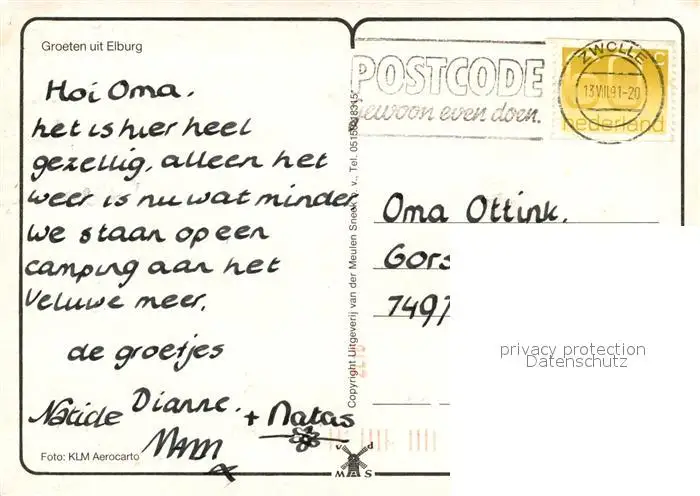 Groeten uit Elburg
Hoi Oma.
het is hier heel
gezellig, alleen het
weer is nu wat minder
we staan op een
camping aan het
Veluwe meer.
de groetjes
Dianne.
+ Natas
Foto: KLM Aerocarto
Copyright Uitgeverij van der Meulen Sneek b.v., Tel. 05150-18315*
POSTCODE
gewoon even doen.
ZWOLLE
13.VIII.91-20
nederland
Oma Ottink.
Gors
7497
privacy protection
Datenschutz
v d
MAS